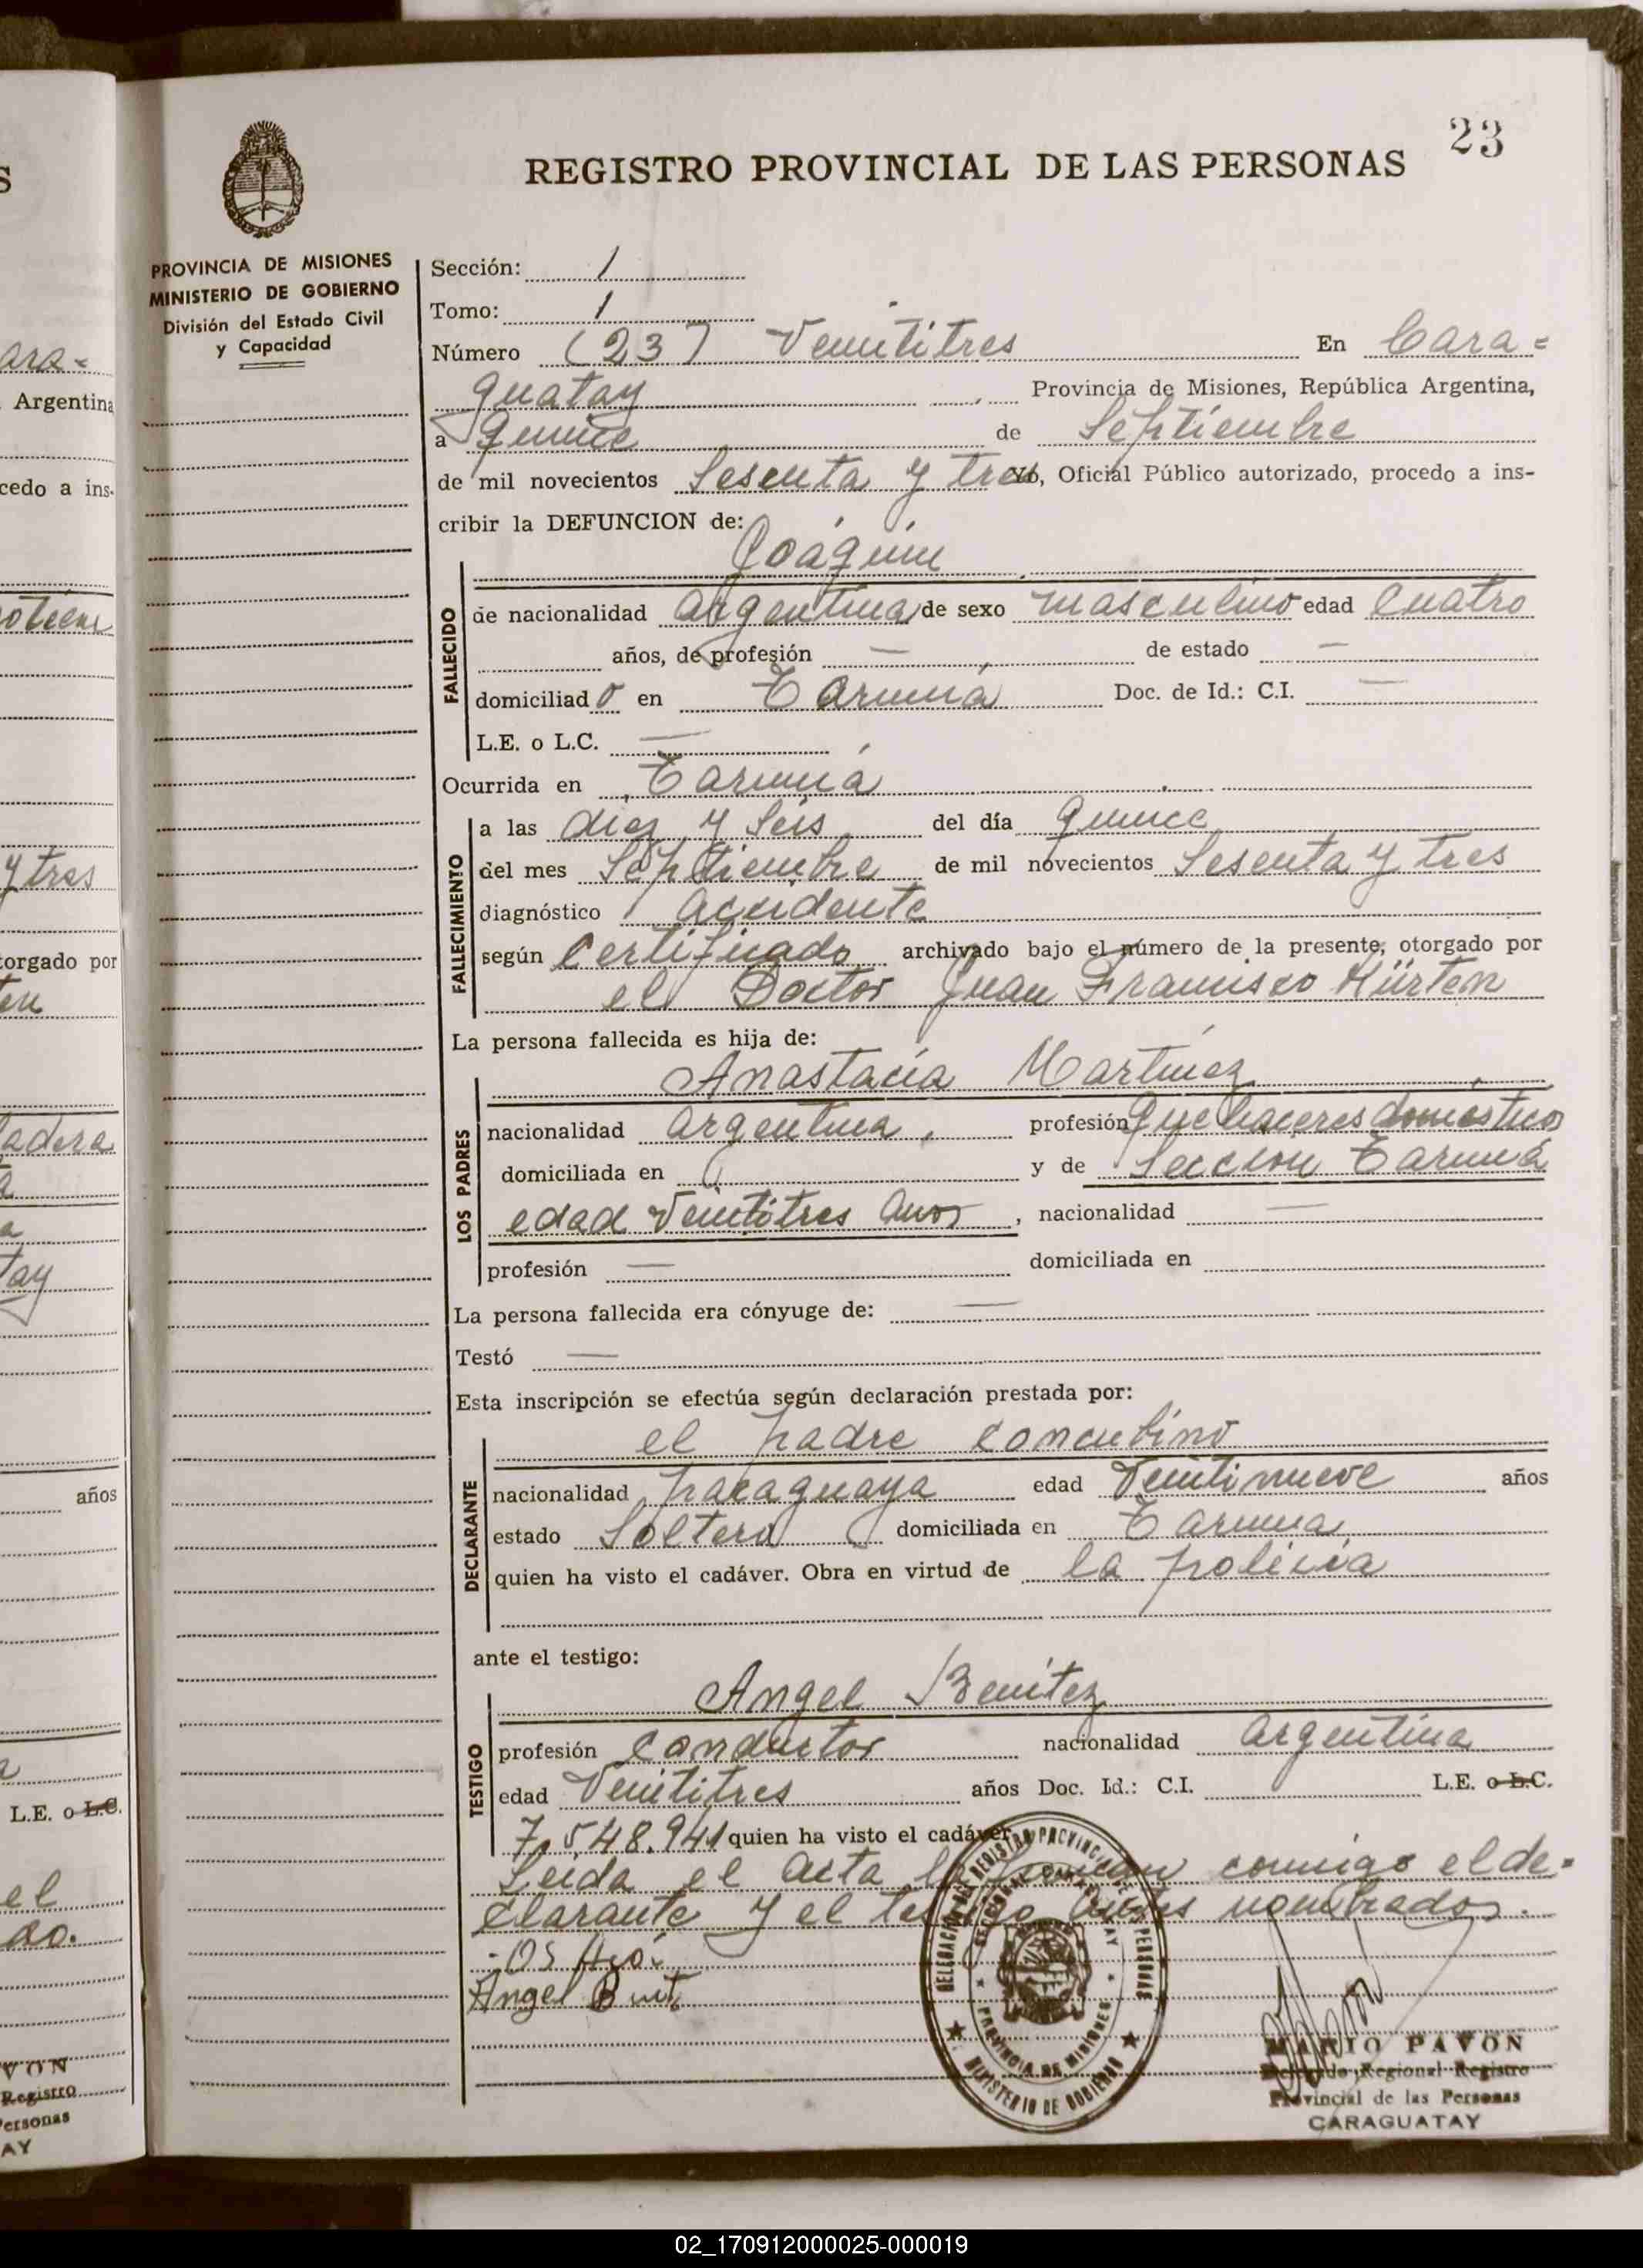 23
REGISTRO PROVINCIAL DE LAS PERSONAS
PROVINCIA DE MISIONES
MINISTERIO DE GOBIERNO
División del Estado Civil
y Capacidad
Sección: 1
Tomo: 1
Número (23) Veintitres En Cara=
guatay Provincia de Misiones, República Argentina,
a quince de Septiembre
de mil novecientos Sesenta y tres Yo, Oficial Público autorizado, procedo a ins-
cribir la DEFUNCION de:
Joaquin
FALLECIDO
de nacionalidad argentina de sexo masculino edad Cuatro
años, de profesión — de estado —
domiciliado en Tarumá Doc. de Id.: C.I. —
L.E. o L.C. —
Ocurrida en Tarumá
FALLECIMIENTO
a las diez y seis del día quince
del mes Septiembre de mil novecientos Sesenta y tres
diagnóstico accidente
según Certificado archivado bajo el número de la presente, otorgado por
el Doctor Juan Francisco Hürten
La persona fallecida es hija de:
Anastacia Martínez
LOS PADRES
nacionalidad argentina, profesión Quehaceres domestico
domiciliada en y de Sección Tarumá
edad Veintitres años, nacionalidad —
profesión — domiciliada en
La persona fallecida era cónyuge de: —
Testó —
Esta inscripción se efectúa según declaración prestada por:
el padre concubino
DECLARANTE
nacionalidad paraguaya edad Veintinueve años
estado Soltero domiciliada en Taruma
quien ha visto el cadáver. Obra en virtud de la policia
ante el testigo:
Angel Benítez
TESTIGO
profesión Conductor nacionalidad argentina
edad Veintitres años Doc. Id.: C.I. L.E. o L.C.
7.548.941 quien ha visto el cadáver
Leida el acta la firman conmigo el de=
clarante y el testigo antes nombrados.
Angel
MARIO PAVON
Delegado Regional Registro
Provincial de las Personas
CARAGUATAY
MINISTERIO DE GOBIERNO
PROVINCIA DE MISIONES
ara=
Argentina
cedo a ins-
y tres
torgado por
tay
años
L.E. o L.C.
el
do.
VON
Registro
ersonas
AY
02_170912000025-000019